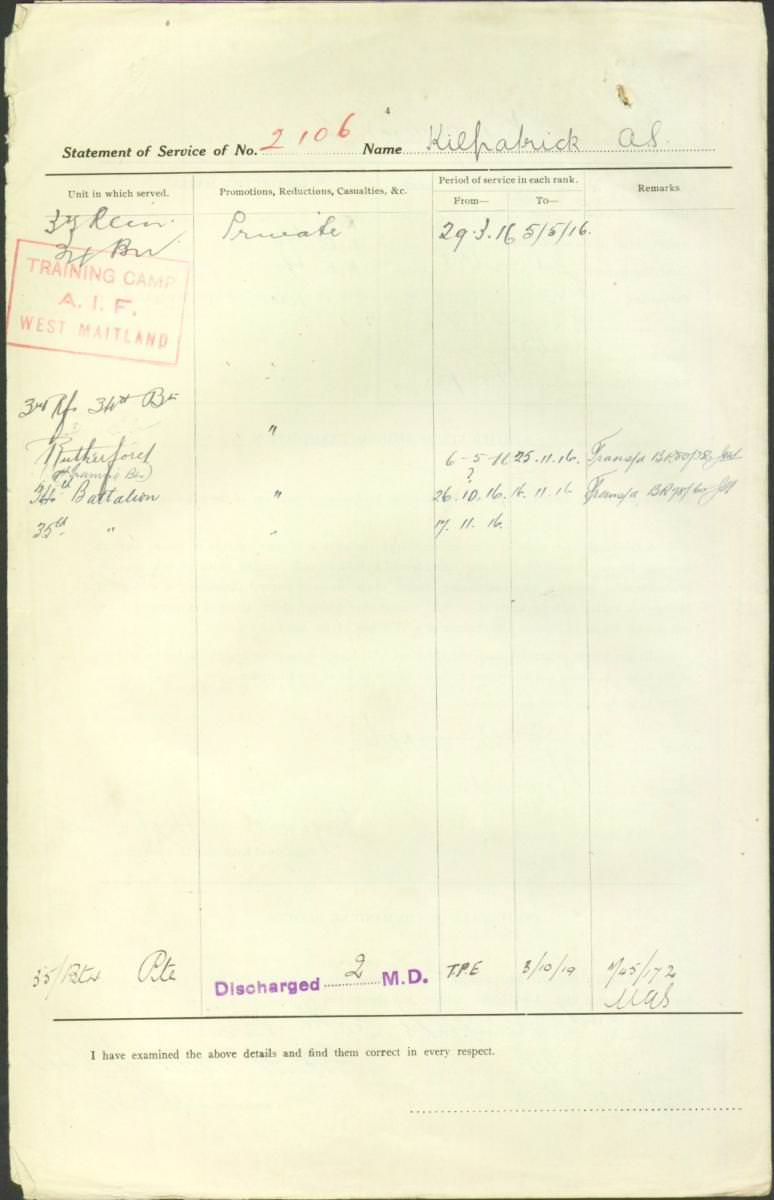 4
Statement of Service of No. 2106 Name Kilpatrick A.S.
Unit in which served. Promotions, Reductions, Casualties, &c. Period of service in each rank. Remarks
From— To—
Private 29.3.16 5/5/16.
TRAINING CAMP
A. I. F.
WEST MAITLAND
3rd Rfs 34th Bn "
Rutherford 6-5-16 25.11.16. Transfd
?
Battalion " 26.10.16. 16.11.16 Transfd
35th " " 17.11.16.
35/Btn Pte Discharged 2 M.D. T.P.E 3/10/19
I have examined the above details and find them correct in every respect.